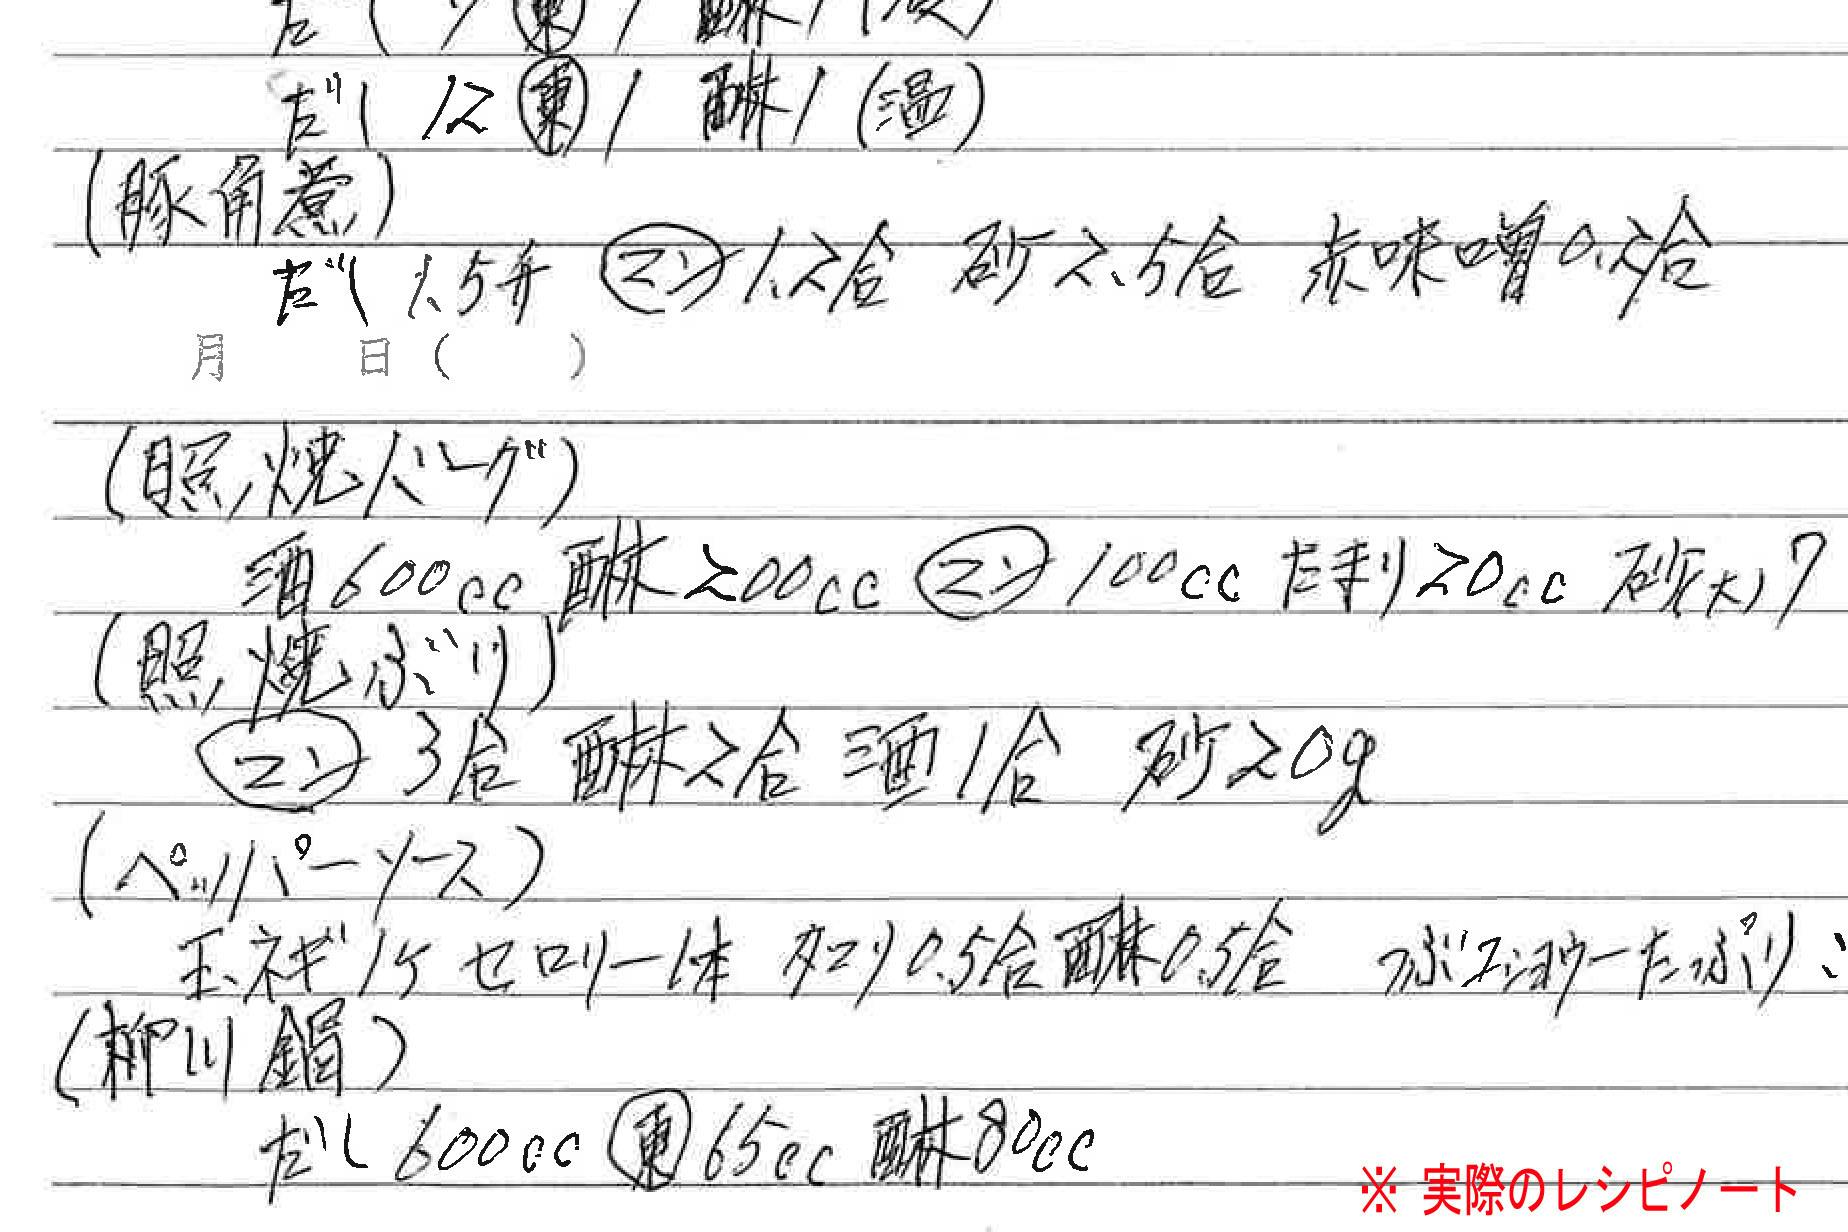 だし 12 ㊍東 1 醂 1 (温)
(豚角煮)
だし 1.5升 マン 1.2合 砂 2.5合 赤味噌 0.2合
月 日 ( )
(照焼バーグ)
酒 600cc 醂 200cc マン 100cc たまり 20cc 砂 大1 7
(照焼ぶり)
マン 3合 醂 2合 酒 1合 砂 20g
(ペッパーソース)
玉ネギ 1ケ セロリー 1本 タマリ 0.5合 醂 0.5合 つぶコショウーたっぷり
(柳川鍋)
だし 600cc 東 65cc 醂 80cc
※ 実際のレシピノート